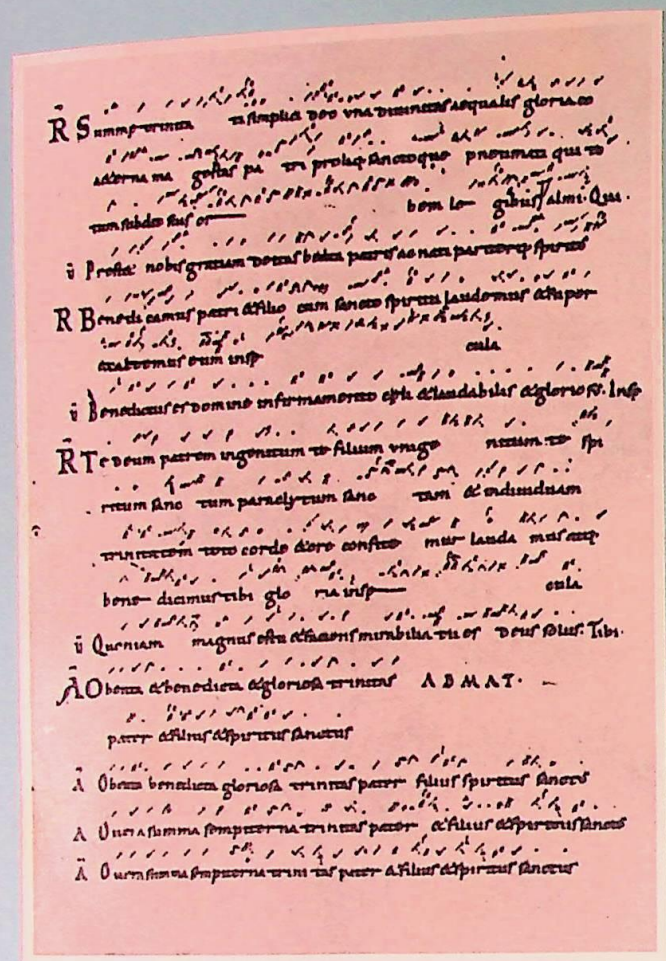 R Summe trinita ti simplici deo una divinitas aequalis gloria co
aeterna ma gestas pa tri proliq; sanctoque pneumati qui to
tum subdit suis or bem le gibus almi. Qui.
v Prestet nobis gratiam deitas beata patris ac nati pariterq; spiritus
R Benedicamus patri & filio cum sancto spiritu laudemus & super
exaltemus eum insę cula
v Benedictus es domine in firmamento cęli & laudabilis & gloriosus. Insę
R Te deum patrem ingenitum te filium unige nitum te spi
ritum sanc tum paraclytum sanc tam & individuam
trinitatem toto corde & ore confite mur lauda mus atq;
bene dicimus tibi glo ria insę cula
v Quoniam magnus es tu & faciens mirabilia tu es deus solus. Tibi.
A O beata & benedicta & gloriosa trinitas AD MAT.
pater & filius & spiritus sanctus
A O beata benedicta gloriosa trinitas pater filius spiritus sanctus
A O vera summa sempiterna trinitas pater & filius & spiritus sanctus
A O vera summa sempiterna trini tas pater & filius & spiritus sanctus